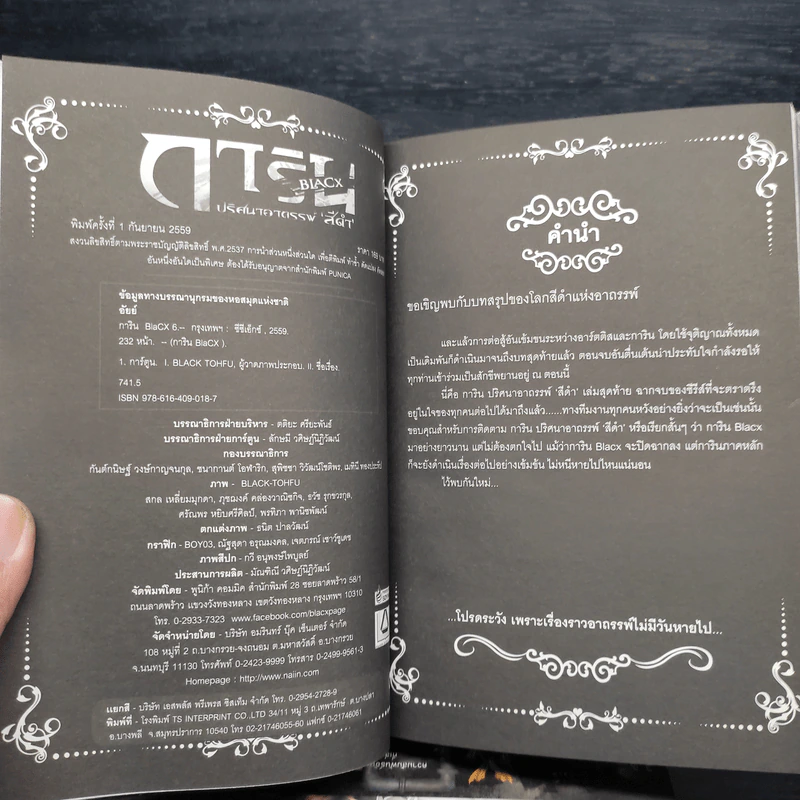 การิน
BLACX
ปริศนาอาถรรพ์ 'สีดำ'
พิมพ์ครั้งที่ 1 กันยายน 2559
ราคา 169
สงวนลิขสิทธิ์ตามพระราชบัญญัติลิขสิทธิ์ พ.ศ.2537 การนำส่วนหนึ่งส่วนใด เพื่อตีพิมพ์ ทำซ้ำ ดัดแปลง
อันหนึ่งอันใดเป็นพิเศษ ต้องได้รับอนุญาตจากสำนักพิมพ์ PUNICA
ข้อมูลทางบรรณานุกรมของหอสมุดแห่งชาติ
อัยย์
การิน BlaCX 6.-- กรุงเทพฯ : ซีซีเอ็กซ์, 2559.
232 หน้า. -- (การิน BlaCX ).
1. การ์ตูน. I. BLACK TOHFU, ผู้วาดภาพประกอบ. II. ชื่อเรื่อง.
741.5
ISBN 978-616-409-018-7
บรรณาธิการฝ่ายบริหาร - ตติยะ ศรียะพันธ์
บรรณาธิการฝ่ายการ์ตูน - ลักษมี วศิษฏ์นิฏิวัฒน์
กองบรรณาธิการ
กันต์กนิษฐ์ วงษ์กาญจนกุล, ชนากานต์ โอฬาริก, สุพิชชา วิวัฒน์โชติพร, เมทินี ทองประทีป
ภาพ - BLACK-TOHFU
สกล เหลี่ยมมุกดา, ภุชฌงค์ คล่องวาณิชกิจ, ธวัช รุกขวรกุล,
ศรัณพร หยิบศรีศิลป์, พรทิภา พานิชพัฒน์
ตกแต่งภาพ - ธนิต ปาลวัฒน์
กราฟิก - BOY03, ณัฐสุดา อรุณมงคล, เจตภรณ์ เชาว์ชูเดช
ภาพสีปก - กวี อนุพงษ์ไพบูลย์
ประสานการผลิต - มัณฑิณี วศิษฏ์นิฏิวัฒน์
จัดพิมพ์โดย - พูนิก้า คอมมิค สำนักพิมพ์ 28 ซอยลาดพร้าว 58/1
ถนนลาดพร้าว แขวงวังทองหลาง เขตวังทองหลาง กรุงเทพฯ 10310
โทร. 0-2933-7323 www.facebook.com/blacxpage
จัดจำหน่ายโดย - บริษัท อมรินทร์ บุ๊ค เซ็นเตอร์ จำกัด
108 หมู่ที่ 2 ถ.บางกรวย-จงถนอม ต.มหาสวัสดิ์ อ.บางกรวย
จ.นนทบุรี 11130 โทรศัพท์ 0-2423-9999 โทรสาร 0-2499-9561-3
Homepage : http://www.naiin.com
แยกสี - บริษัท เอสพลัส พรีเพรส ซิสเท็ม จำกัด โทร. 0-2954-2728-9
พิมพ์ที่ - โรงพิมพ์ TS INTERPRINT CO.,LTD 34/11 หมู่ 3 ถ.เทพารักษ์ ต.บางปลา
อ.บางพลี จ.สมุทรปราการ 10540 โทร 02-21746055-60 แฟกซ์ 0-21746061
คำนำ
ขอเชิญพบกับบทสรุปของโลกสีดำแห่งอาถรรพ์
และแล้วการต่อสู้อันเข้มข้นระหว่างอาร์ตติสและการิน โดยใช้จุติญาณทั้งหมด
เป็นเดิมพันก็ดำเนินมาจนถึงบทสุดท้ายแล้ว ตอนจบอันตื่นเต้นน่าประทับใจกำลังรอให้
ทุกท่านเข้าร่วมเป็นสักขีพยานอยู่ ณ ตอนนี้
นี่คือ การิน ปริศนาอาถรรพ์ 'สีดำ' เล่มสุดท้าย ฉากจบของซีรีส์ที่จะตราตรึง
อยู่ในใจของทุกคนต่อไปได้มาถึงแล้ว......ทางทีมงานทุกคนหวังอย่างยิ่งว่าจะเป็นเช่นนั้น
ขอบคุณสำหรับการติดตาม การิน ปริศนาอาถรรพ์ 'สีดำ' หรือเรียกสั้นๆ ว่า การิน Blacx
มาอย่างยาวนาน แต่ไม่ต้องตกใจไป แม้ว่าการิน Blacx จะปิดฉากลง แต่การินภาคหลัก
ก็จะยังดำเนินเรื่องต่อไปอย่างเข้มข้น ไม่หนีหายไปไหนแน่นอน
ไว้พบกันใหม่...
...โปรดระวัง เพราะเรื่องราวอาถรรพ์ไม่มีวันหายไป...